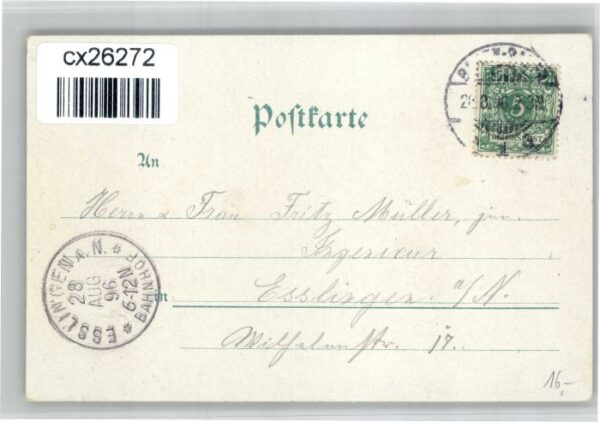 cx26272
Postkarte
An
Herrn & Frau Fritz Müller, jun.
Ingenieur
in Esslingen a/N.
Wilhelmstr. 17.
ESSLINGEN A. N. * BAHNHOF *
28
AUG
96
6-12N
3
16,-